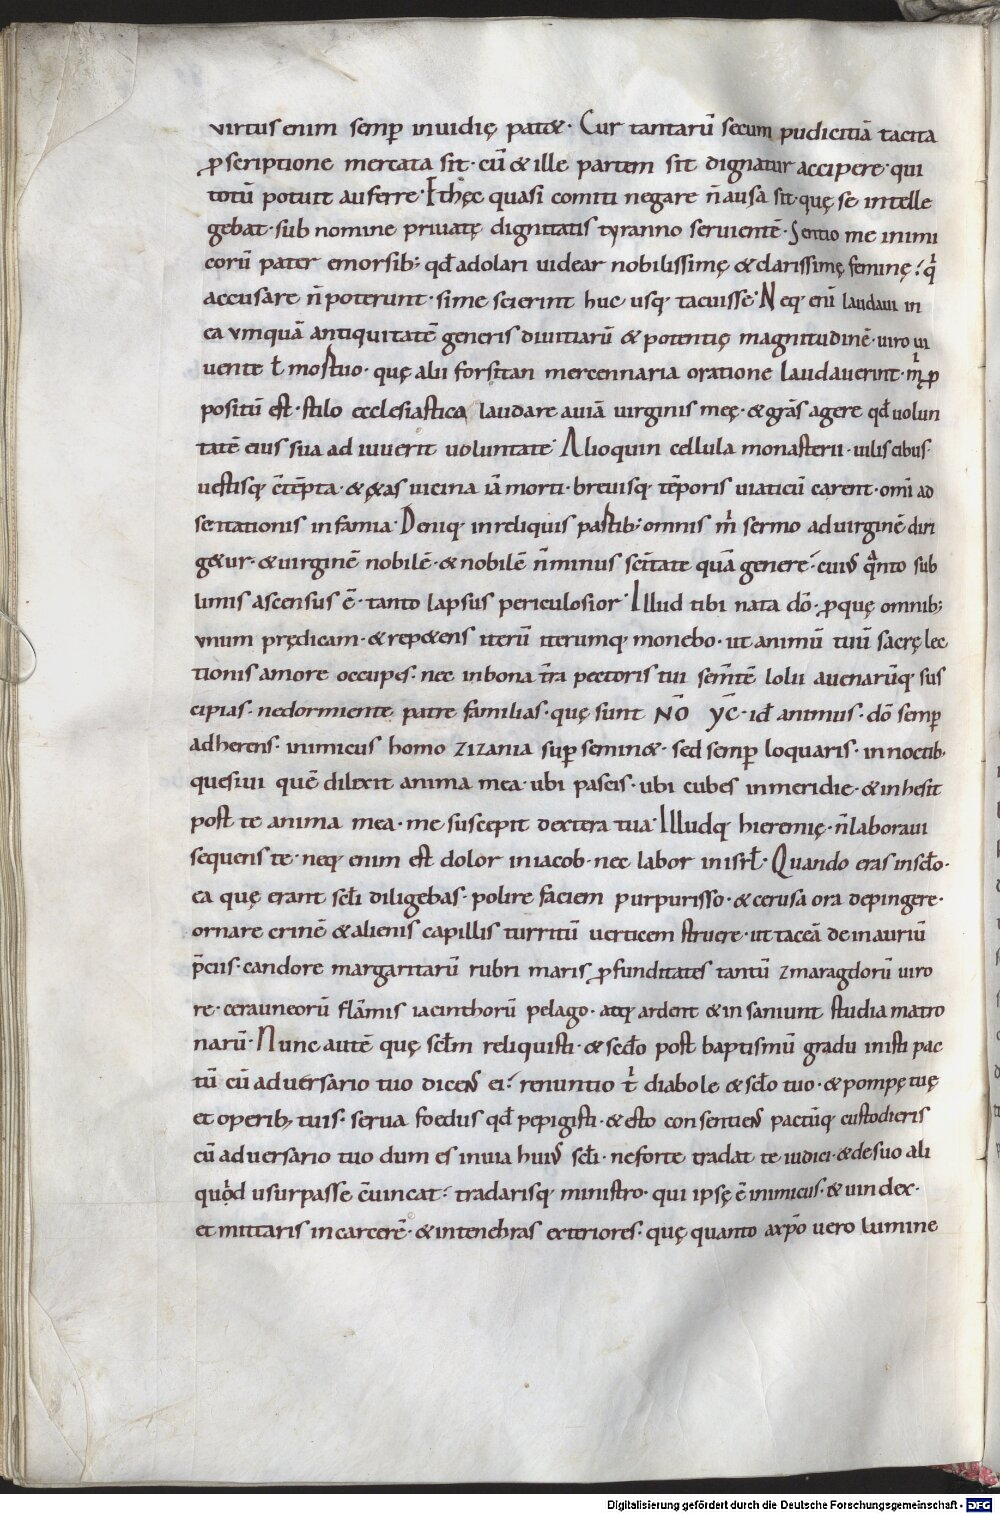 virtus enim semp̄ inuidię patet. Cur tantarū secum pudicitiā tacita
ꝓscriptione mercata sit. cū & ille partem sit dignatur accipere. qui
totū potuit auferre. Et hęc quasi comiti negare n̄ ausa sit. quę se intelle
gebat. sub nomine priuatę dignitatis tyranno seruientē. Sentio me inimi
corū pater e morsib; qđ adolari uidear nobilissimę & clarissimę feminę. q
accusare n̄ poterunt. si me scierint huc usq; tacuisse. Neq; eni laudaui in
ea vmquā antiquitatē generis diuitiarū & potentię magnitudinē. uiro ui
uente ł mortuo. quę alii forsitan mercennaria oratione laudauerint. m ꝓ
positū est. stilo ecclesiastica laudare auiā uirginis meę. & gr̄as agere qđ uolun
tatē eius sua adiuuerit uoluntate. Alioquin cellula monasterii. uilis cibus.
uestisq; c̄tēpta. & ętas uicina iā morti. breuisq; tēporis uiaticū carent. omi ad
sentationis infamia. Deniq; in reliquis partib; omnis m sermo ad uirginē diri
getur. & uirginē nobilē. & nobilē n̄ minus sc̄itate quā genere. cui qnto sub
limis ascensus ē. tanto lapsus periculosior. Illud tibi nata dō. ꝓque omnib;
vnum prędicam. & repetens iterū iterumq; monebo. ut animū tuū sacrę lec
tionis amore occupes. nec in bona t̄ra pectoris tui sem̄tē lolii auenarūq; sus
cipias. ne dormiente patre familias. quę sunt NO YC. id animus. dō semp̄
adherens. inimicus homo zizania sup̄ seminet. sed semp̄ loquaris. in noctib;
quesiui quē dilexit anima mea. ubi pascis. ubi cubes in meridie. & inhesit
post te anima mea. me suscepit dextera tua. Illudq; hieremię. n̄ laboraui
sequens te. neq; enim est dolor in iacob. nec labor in isrł. Quando eras in scło.
ea quę erant scłi diligebas. polire faciem purpurisso. & cerusa ora depingere.
ornare crinē & alienis capillis turritū uerticem struere. ut taceā de inauriū
p̄ciis. candore margaritarū rubri maris ꝓfunditates tantū zmaragdorū uiro
re. cerauneorū flāmis iacinthorū pelago. atq; ardent & insaniunt studia matro
narū. Nunc autē quę scłm reliquisti. & scđo post baptismū gradu inisti pac
tū cū aduersario tuo dicens ei. renuntio t diabole & scło tuo. & pompę tuę
et operib; tuis. serua foedus qđ pepigisti. & esto consentiens pactūq; custodieris
cū aduersario tuo dum es in uia huius scłi. ne forte tradat te iudici. & de suo ali
quod usurpasse c̄uincat. tradarisq; ministro. qui ipsę ē inimicus. & uindex.
et mittaris in carcerē. & in tenebras exteriores. quę quanto a xp̄o uero lumine
Digitalisierung gefördert durch die Deutsche Forschungsgemeinschaft - DFG